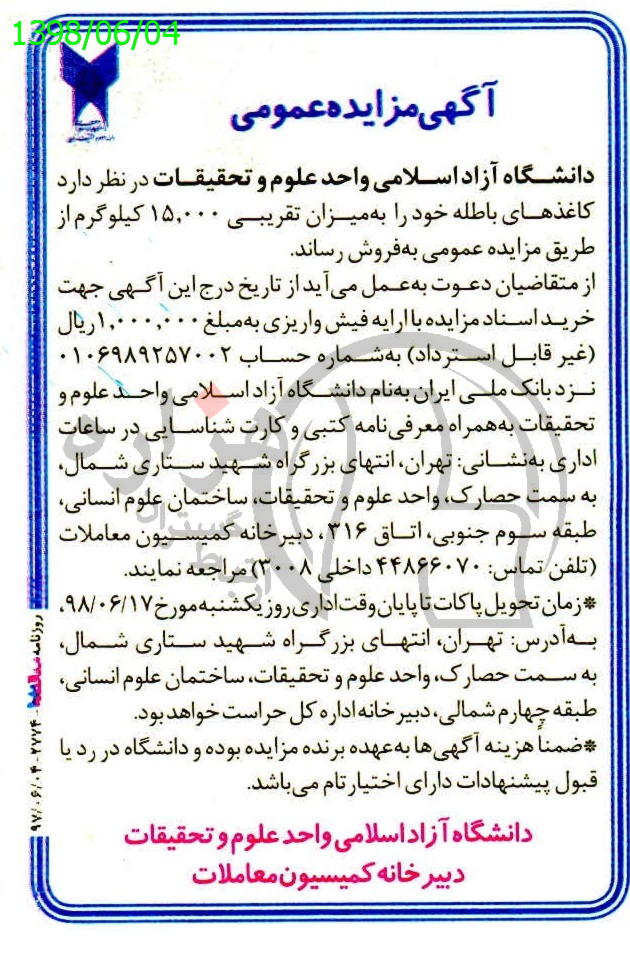 1398/06/04
آگهی مزایده عمومی
دانشگاه آزاد اسلامی واحد علوم و تحقیقات در نظر دارد
کاغذهای باطله خود را به‌میزان تقریبی ۱۵,۰۰۰ کیلوگرم از
طریق مزایده عمومی به‌فروش رساند.
از متقاضیان دعوت به‌عمل می‌آید از تاریخ درج این آگهی جهت
خرید اسناد مزایده با ارایه فیش واریزی به‌مبلغ ۱,۰۰۰,۰۰۰ ریال
(غیر قابل استرداد) به‌شماره حساب ۰۱۰۶۹۸۹۲۵۷۰۰۲
نزد بانک ملی ایران به‌نام دانشگاه آزاد اسلامی واحد علوم و
تحقیقات به‌همراه معرفی‌نامه کتبی و کارت شناسایی در ساعات
اداری به‌نشانی: تهران، انتهای بزرگراه شهید ستاری شمال،
به سمت حصارک، واحد علوم و تحقیقات، ساختمان علوم انسانی،
طبقه سوم جنوبی، اتاق ۳۱۶، دبیرخانه کمیسیون معاملات
(تلفن تماس: ۴۴۸۶۶۰۷۰ داخلی ۳۰۰۸) مراجعه نمایند.
*زمان تحویل پاکات تا پایان وقت اداری روز یکشنبه مورخ ۹۸/۰۶/۱۷،
به‌آدرس: تهران، انتهای بزرگراه شهید ستاری شمال،
به سمت حصارک، واحد علوم و تحقیقات، ساختمان علوم انسانی،
طبقه چهارم شمالی، دبیرخانه اداره کل حراست خواهد بود.
*ضمناً هزینه آگهی‌ها به‌عهده برنده مزایده بوده و دانشگاه در رد یا
قبول پیشنهادات دارای اختیار تام می‌باشد.
دانشگاه آزاد اسلامی واحد علوم و تحقیقات
دبیرخانه کمیسیون معاملات
روزنامه
۹۷/۰۶/۰۴-۲۷۷۴
هزاره
گستران